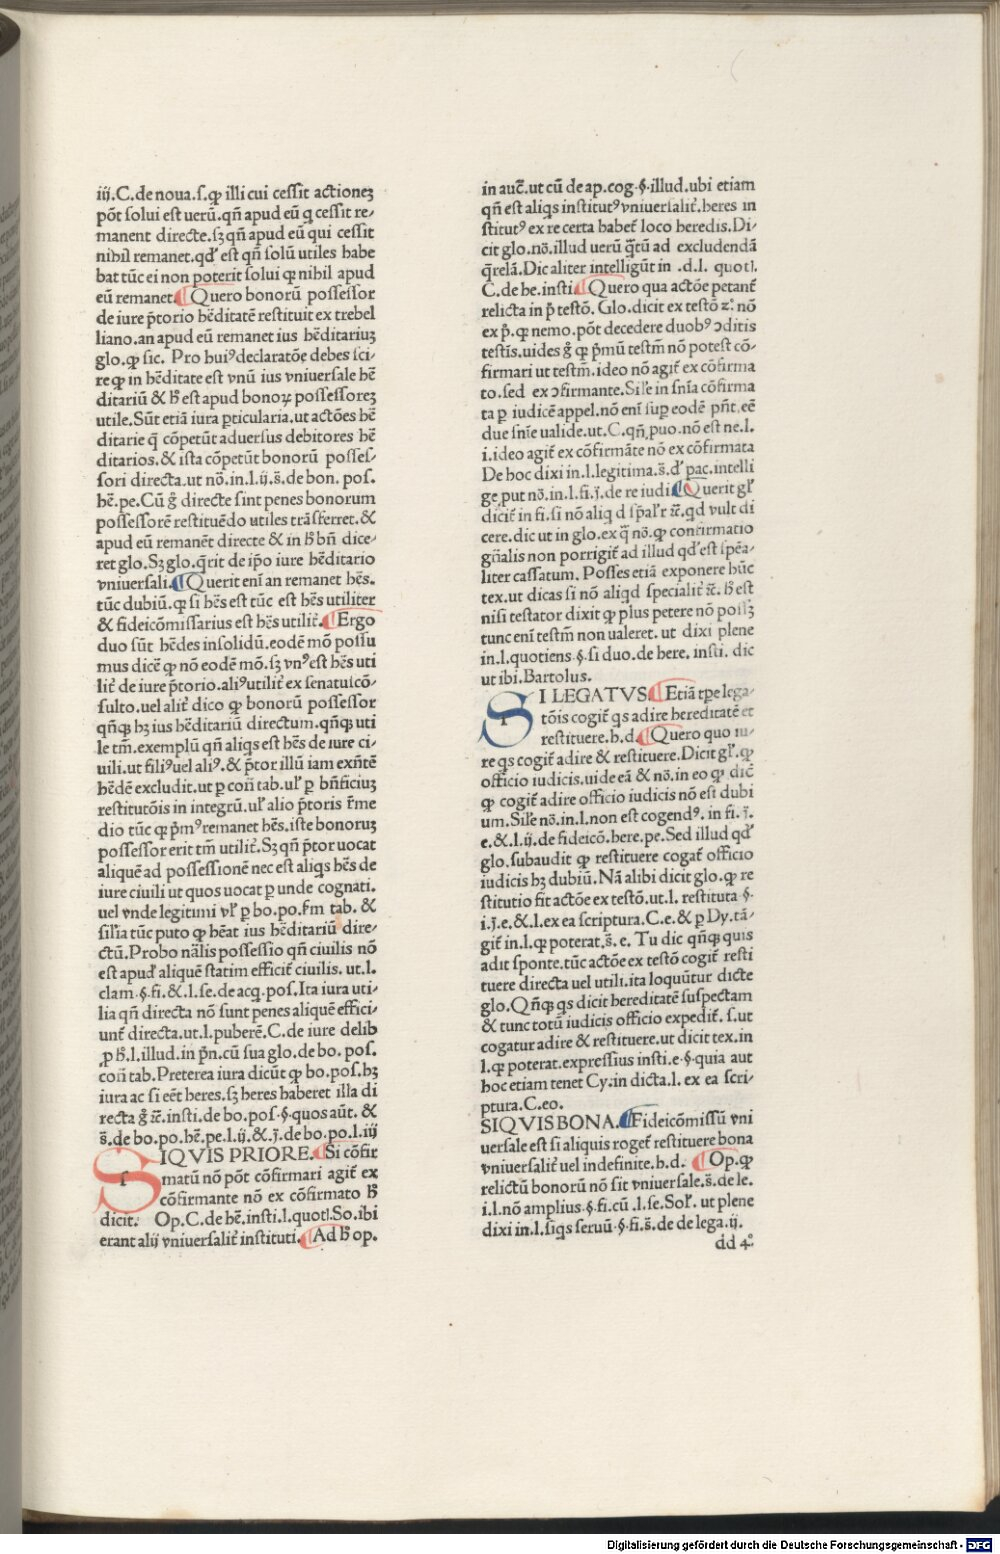 iij.C.de noua.s.ꝙ illi cui cessit actioneʒ
põt solui est uerũ.qñ apud eũ q̃ cessit re⸗
manent directe.sʒ qñ apud eũ qui cessit
nihil remanet.qď est qñ solũ utiles habe
bat tũc ei non poterit solui ꝙ nihil apud
eũ remanet.¶Quero bonorũ possessor
de iure p̃torio hẽditatẽ restituit ex trebel
liano.an apud eũ remanet ius hẽditariuʒ
glo.ꝙ sic. Pro huiꝰ declaratõe debes sci⸗
re ꝙ in hẽditate est vnũ ius vniuersale hẽ
ditariũ & h̃ est apud bonoꝝ possessoreʒ
utile.Sũt etiã iura pticularia.ut actões hẽ
ditarie q̃ cõpetũt aduersus debitores hẽ
ditarios.& ista cõpetũt bonorũ posses⸗
sori directa.ut nõ.in.l.ij.s̃.de bon. pos.
hẽ.pe.Cũ g̃ directe sint penes bonorum
possessorẽ restituẽdo utiles trãsferret.&
apud eũ remanẽt directe & in h̃ bñ dice⸗
ret glo.Sʒ glo.q̃rit de ipõ iure hẽditario
vniuersali.¶Querit eni an remanet hẽs.
tũc dubiũ.ꝙ si hẽs est tũc est hẽs utiliter
& fideicõmissarius est hẽs utilit̃.¶Ergo
duo sũt hẽdes insolidũ.eodẽ mõ possu
mus dicẽ ꝙ nõ eodẽ mõ.sʒ vnꝰ est hẽs uti
lit̃ de iure p̃torio.aliꝰ utilit̃ ex senatuscõ⸗
sulto.uel alit̃ dico ꝙ bonorũ possessor
qñqʒ hʒ ius hẽditariũ directum.qñqʒ uti
le tm̃.exemplũ qñ aliqs est hẽs de iure ci⸗
uili.ut filiꝰ uel aliꝰ.& p̃tor illũ iam exñtẽ
hẽdẽ excludit.ut ꝑ coñ tab.uľ ꝑ bñficiuʒ
restitutõis in integrũ.uľ alio p̃toris r̃me
dio tũc ꝙ p̃mꝰ remanet hẽs.iste bonoruʒ
possessor erit tm̃ utilit̃.Sʒ qñ p̃tor uocat
aliquẽ ad possessionẽ nec est aliqs hẽs de
iure ciuili ut quos uocat ꝑ unde cognati.
uel vnde legitimi vľ ꝑ bo.po.r̃m tab. &
silĩa tũc puto ꝙ hẽat ius hẽditariũ dire⸗
ctũ.Probo nãlis possessio qñ ciuilis nõ
est apuď aliquẽ statim efficit̃ ciuilis. ut.l.
clam.§.fi.&.l.se.de acq.pos.Ita iura uti⸗
lia qñ directa nõ sunt penes aliquẽ effici⸗
unt̃ directa.ut.l.puberẽ.C.de iure delib
ꝓ h̃.l.illud.in p̃n.cũ sua glo.de bo. pos.
coñ tab.Preterea iura dicũt ꝙ bo.pos.hʒ
iura ac si eẽt heres.sʒ heres haberet illa di
recta g̃ ĩc.insti.de bo.pos.§.quos aũt. &
s̃.de bo.po.hẽ.pe.l.ij.&.j̃.de bo.po.l.iij
SIQVIS PRIORE.¶Si cõfir
matũ nõ põt cõfirmari agit̃ ex
cõfirmante nõ ex cõfirmato h̃
dicit. Op.C.de hẽ.insti.l.quotľ.So.ibi
erant alij vniuersalit̃ instituti.¶Ad h̃ op.
in auc̃.ut cũ de ap.cog.§.illud.ubi etiam
qñ est aliqs institutꝰ vniuersalit̃.heres in
stitutꝰ ex re certa habet̃ loco heredis.Di⸗
cit glo.nõ.illud uerũ q̃tũ ad excludendã
q̃relã.Dic aliter intelligũt in .d.l. quotľ.
C.de he.insti.¶Quero qua actõe petant̃
relicta in p̃ testõ. Glo.dicit ex testõ z̊. nõ
ex p̃.ꝙ nemo.põt decedere duobꝰ ↄditis
testĩs.uides g̃ ꝙ p̃mũ testm̃ nõ potest cõ⸗
firmari ut testm̃.ideo nõ agit̃ ex cõfirma
to.sed ex ↄfirmante.Siľe in snĩa cõfirma
ta ꝑ iudicẽ appel.nõ eni suꝑ eodẽ pñt.eẽ
due snĩe ualide.ut.C.qñ.puo.nõ est ne.l.
i.ideo agit̃ ex cõfirmãte nõ ex cõfirmata
De hoc dixi in.l.legitima.s̃.ď pac.intelli
ge.put nõ.in.l.fi.j̃.de re iudi.¶Querit gľ
dicit̃ in fi.si nõ aliq d sp̃aľr ĩc.qd vult di
cere.dic ut in glo.ex q̃ nõ.ꝙ confirmatio
gñalis non porrigit̃ ad illud qď est spẽa⸗
liter cassatum. Posses etiã exponere hũc
tex.ut dicas si nõ aliqd specialit̃ ĩc. h̃ est
nisi testator dixit ꝙ plus petere nõ possʒ
tunc eni testm̃ non ualeret. ut dixi plene
in.l.quotiens.§.si duo.de here. insti. dic
ut ibi.Bartolus.
SI LEGATVS.¶Etiã tꝑe lega⸗
tõis cogit̃ qs adire hereditatẽ et
restituere.h.d.¶Quero quo iu⸗
re qs cogit̃ adire & restituere.Dicit gľ.ꝙ
officio iudicis.uide eã & nõ.in eo ꝙ dic̃
ꝙ cogit̃ adire officio iudicis nõ est dubi
um.Siľe nõ.in.l.non est cogendꝰ. in fi. j̃.
e.&.l.ij.de fideicõ.here.pe.Sed illud qď
glo.subaudit ꝙ restituere cogat̃ officio
iudicis hʒ dubiũ. Nã alibi dicit glo.ꝙ re
stitutio fit actõe ex testõ.ut.l. restituta §.
i.j̃.e.&.l.ex ea scriptura.C.e.& ꝑ Dy.tã⸗
git̃ in.l.ꝙ poterat.s̃. e. Tu dic qñqʒ quis
adit sponte.tũc actõe ex testõ cogit̃ resti
tuere directa uel utili.ita loquũtur dicte
glo.Qñqʒ qs dicit hereditatẽ suspectam
& tunc totũ iudicis officio expedit̃. s.ut
cogatur adire & restituere.ut dicit tex.in
l.ꝙ poterat.expressius insti.e.§.quia aut
hoc etiam tenet Cy.in dicta.l. ex ea scri⸗
ptura.C.eo.
SIQVIS BONA.¶Fideicõmissũ vni
uersale est si aliquis roget̃ restituere bona
vniuersalit̃ uel indefinite.h.d. ¶Op.ꝙ
relictũ bonorũ nõ sit vniuersale.s̃.de le.
i.l.nõ amplius.§.fi.cũ .l.se.Soľ. ut plene
dixi in.l.siqs seruũ.§.fi.s̃.de de lega.ij.
dd 4̊.
Digitalisierung gefördert durch die Deutsche Forschungsgemeinschaft - DFG